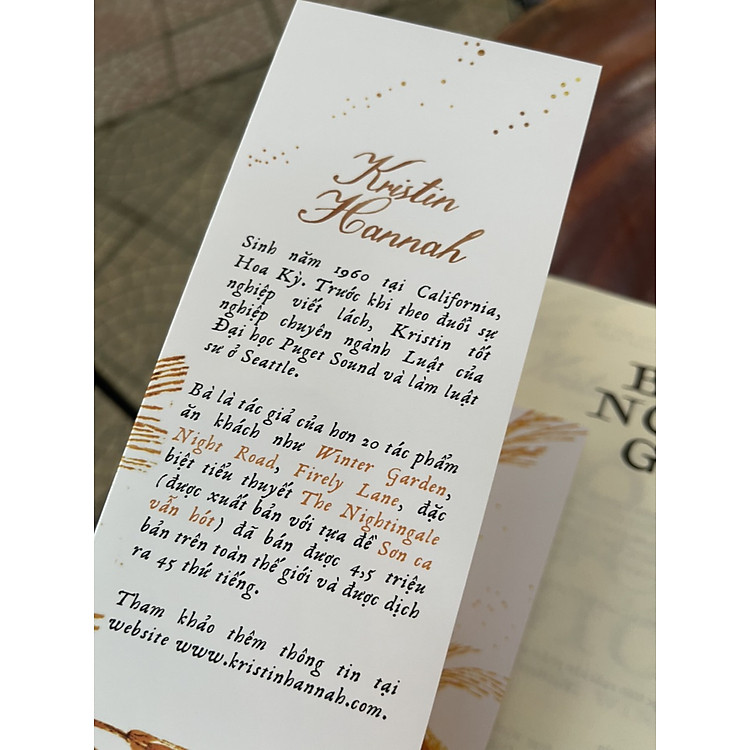 Kristin
Hannah
Sinh năm 1960 tại California,
Hoa Kỳ. Trước khi theo đuổi sự
nghiệp viết lách, Kristin tốt
nghiệp chuyên ngành Luật của
Đại học Puget Sound và làm luật
sư ở Seattle.
Bà là tác giả của hơn 20 tác phẩm
ăn khách như Winter Garden,
Night Road, Firely Lane, đặc
biệt tiểu thuyết The Nightingale
(được xuất bản với tựa đề Sơn ca
vẫn hót) đã bán được 4,5 triệu
bản trên toàn thế giới và được dịch
ra 45 thứ tiếng.
Tham khảo thêm thông tin tại
website www.kristinhannah.com.